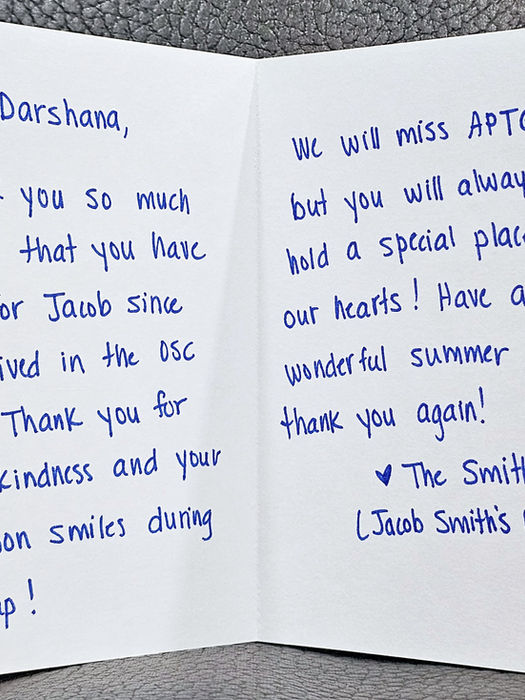 Darshana,
you so much
that you have
or Jacob since
ived in the OSC
Thank you for
kindness and your
on smiles during
p!
We will miss APTC
but you will alway
hold a special plac
our hearts! Have a
wonderful summer
thank you again!
♥ The Smith
(Jacob Smith's